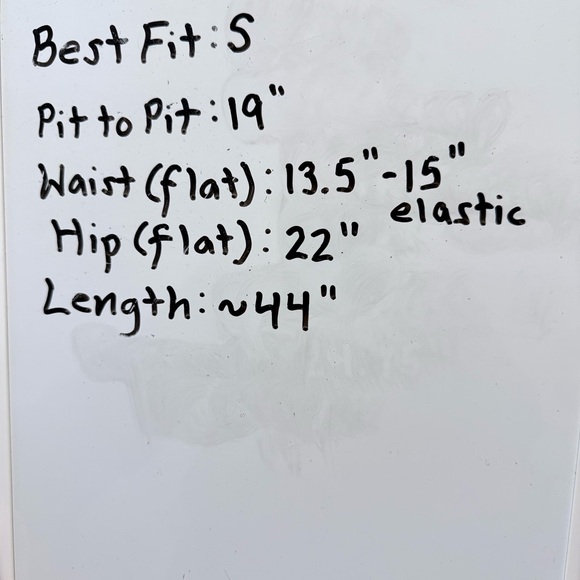 Best Fit: S
Pit to Pit: 19"
Waist (flat): 13.5"-15"
elastic
Hip (flat): 22"
Length: ~44"